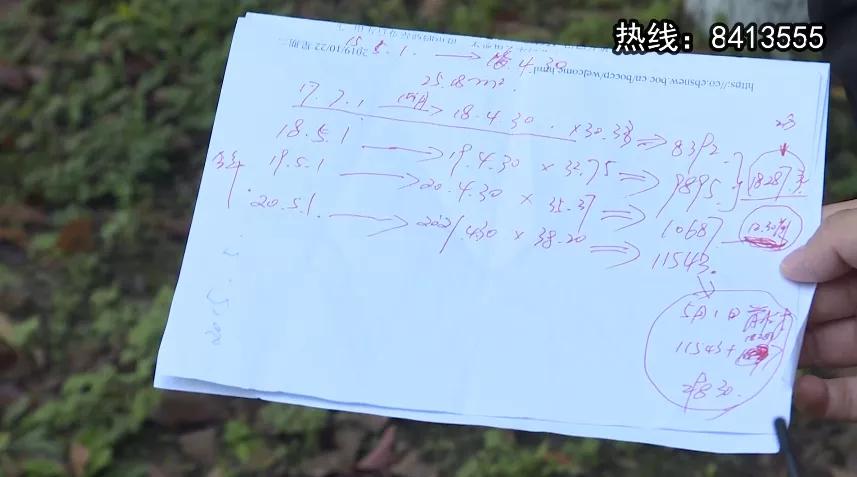 热线：8413555
https://co.cbsnew.boc.cn/boccp/welcome.html
2019/10/22 星期二
15.5.1. → 4.30
25.18m²
17.7.1 → 18.4.30. ×30.33 ⇒ 8392
18.5.1 → 19.4.30 × 32.75 ⇒ 9895.
19.5.1 → 20.4.30 × 35.37 ⇒ 10687
20.5.1. → 2021.4.30 × 38.20 ⇒ 11543.
18287
12.30前
5月1日
11543+
29830.